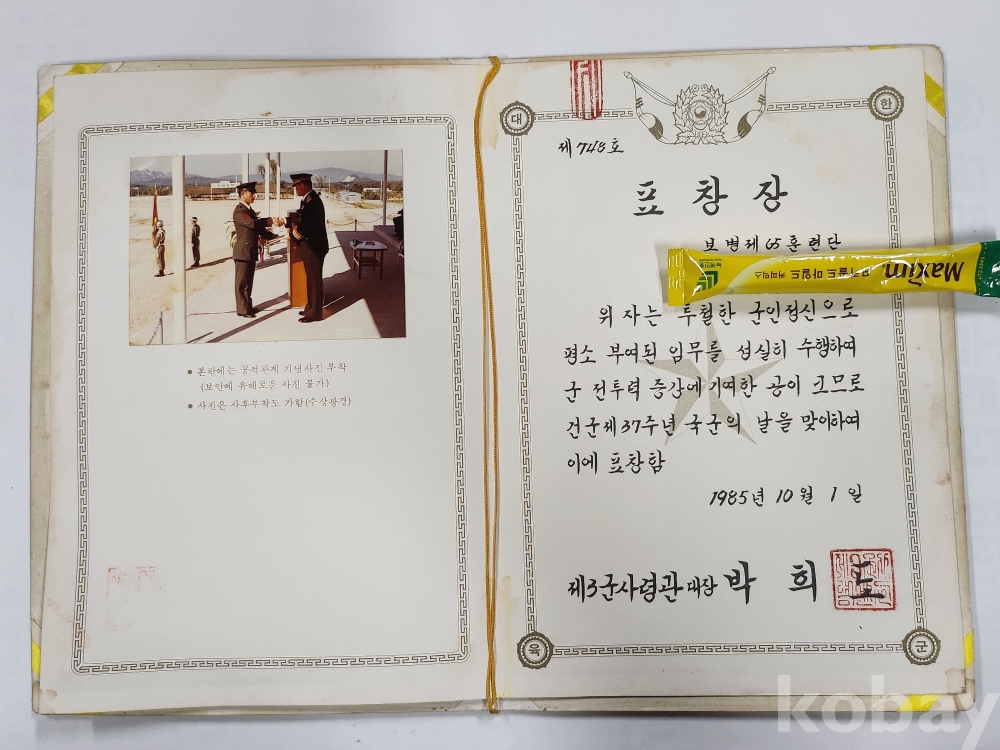 ● 본란에는 공적관계 기념사진 부착
(보안에 유해로운 사진 불가)
● 사진은 사후부착도 가함(수상광경)
대 한
제748호
표창장
보병제65훈련단
Maxim 모카골드 마일드 커피믹스
위 자는 투철한 군인정신으로
평소 부여된 임무를 성실히 수행하여
군 전투력 증강에 기여한 공이 크므로
건군제37주년 국군의 날을 맞이하여
이에 표창함
1985년 10월 1일
제3군사령관 대장 박희도
육 군
kobay